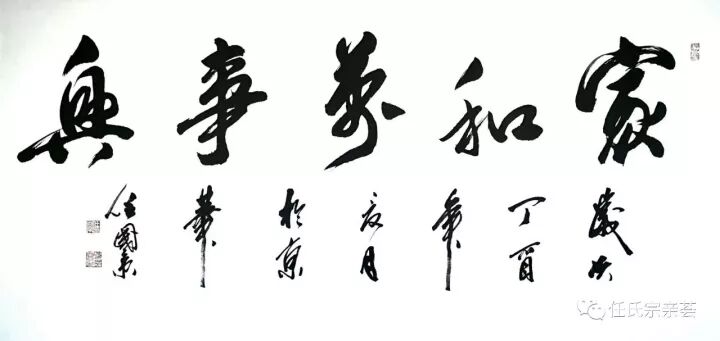 家和萬事興
歲次丁酉年夏月於京華任國
任氏宗亲荟